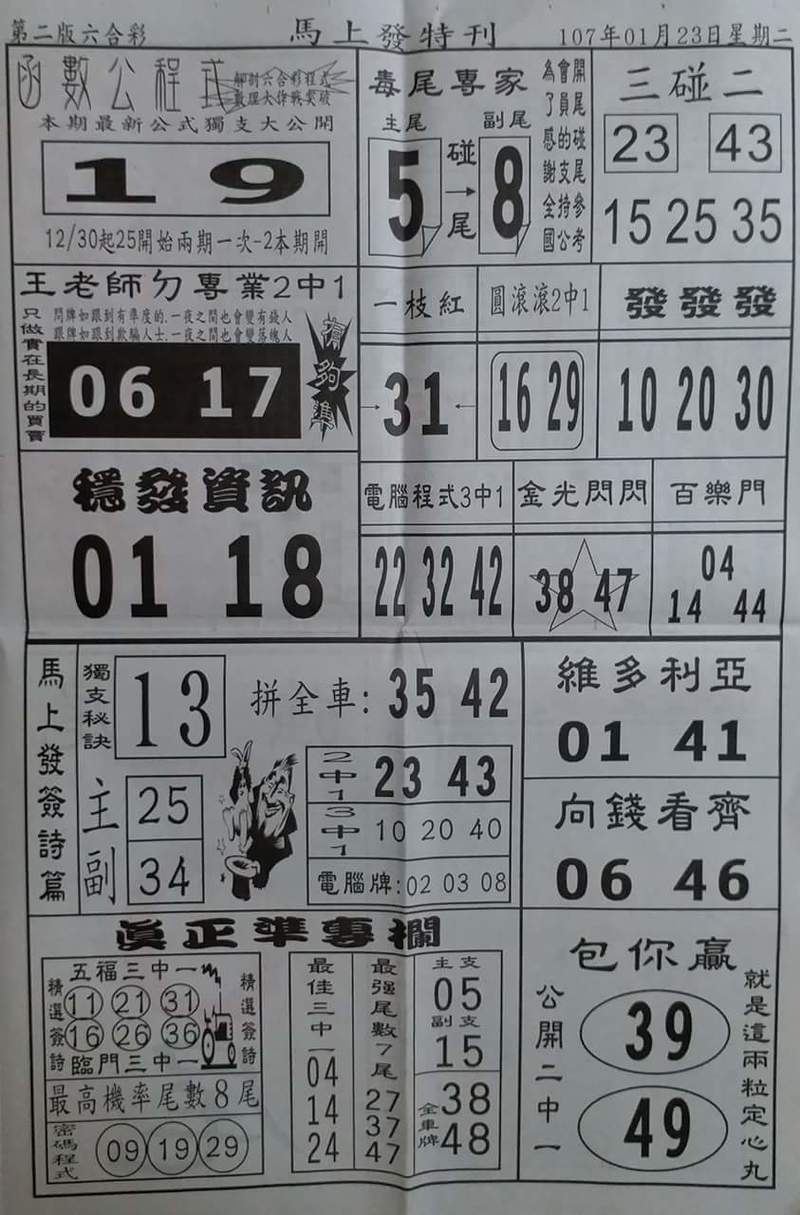 第二版六合彩 馬上發特刊 107年01月23日星期二
函數公程式
解剖六合彩程式
數理大作戰突破
本期最新公式獨支大公開
19
12/30起25開始兩期一次-2本期開
毒尾專家
主尾 副尾
5 碰→尾 8
為了感謝全國
會員的支持公
開尾碰尾參考
三碰二
23 43
15 25 35
王老師ㄉ專業2中1
只做實在長期的買賣
問牌如跟到有準度的,一夜之間也會變有錢人
跟牌如跟到欺騙人士,一夜之間也會變落魄人
06 17
有夠準
一枝紅
31
圓滾滾2中1
16 29
發發發
10 20 30
穩發資訊
01 18
電腦程式3中1
22 32 42
金光閃閃
38 47
百樂門
04
14 44
馬上發簽詩篇
獨支秘訣
13
拼全車: 35 42
主 25
副 34
2中1 23 43
3中1 10 20 40
電腦牌:02 03 08
維多利亞
01 41
向錢看齊
06 46
真正準專欄
五福三中一
精選簽詩
11 21 31
16 26 36
精選簽詩
臨門三中一
最高機率尾數8尾
密碼程式
09 19 29
最佳三中一
04
14
24
最强尾數7尾
27
37
47
主支
05
副支
15
全車牌
38
48
包你贏
公開二中一
39
49
就是這兩粒定心丸